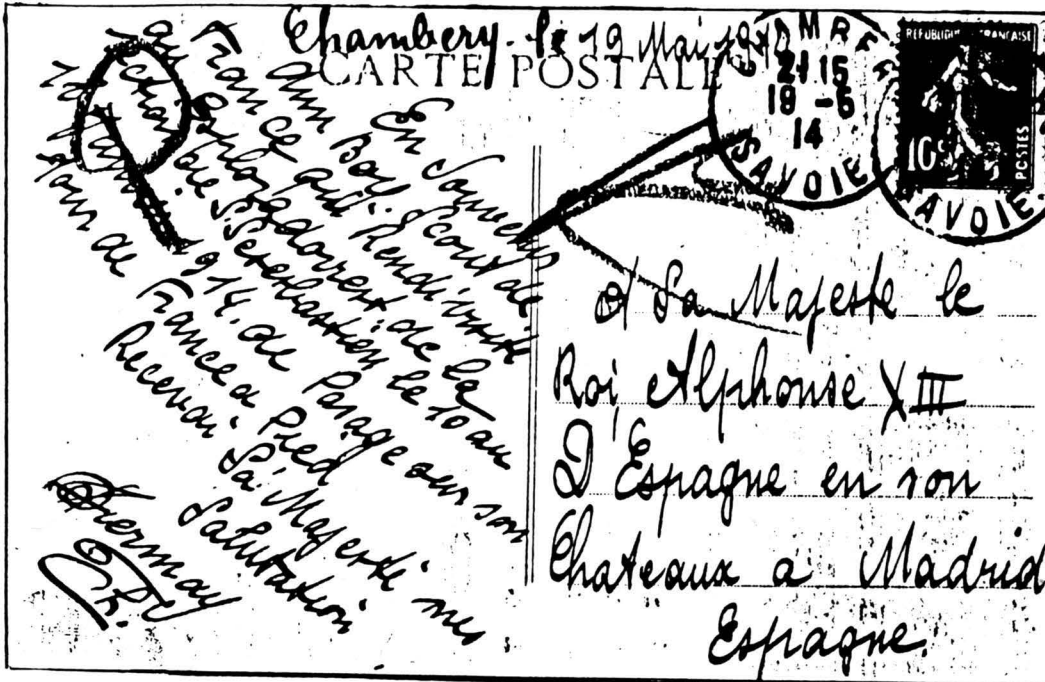 Chambery. le 19 Mai 1914
CARTE POSTALE
CHAMBE
21 15
19 -5
14
SAVOIE
REPUBLIQUE FRANÇAISE
10c
POSTES
SAVOIE
En Souvenir
d'un Boy. Scout de
France qui. Rend visite
aux Exploradores de la
Section de St Sebastien le 10 au
1914. de Pasage sur son
Tour de France a Pied
Recevai Sa Majesté. mes
Salutation
A Sa Majeste le
Roi Alphonse XIII
D'Espagne en son
Chateaux a Madrid
Espagne.